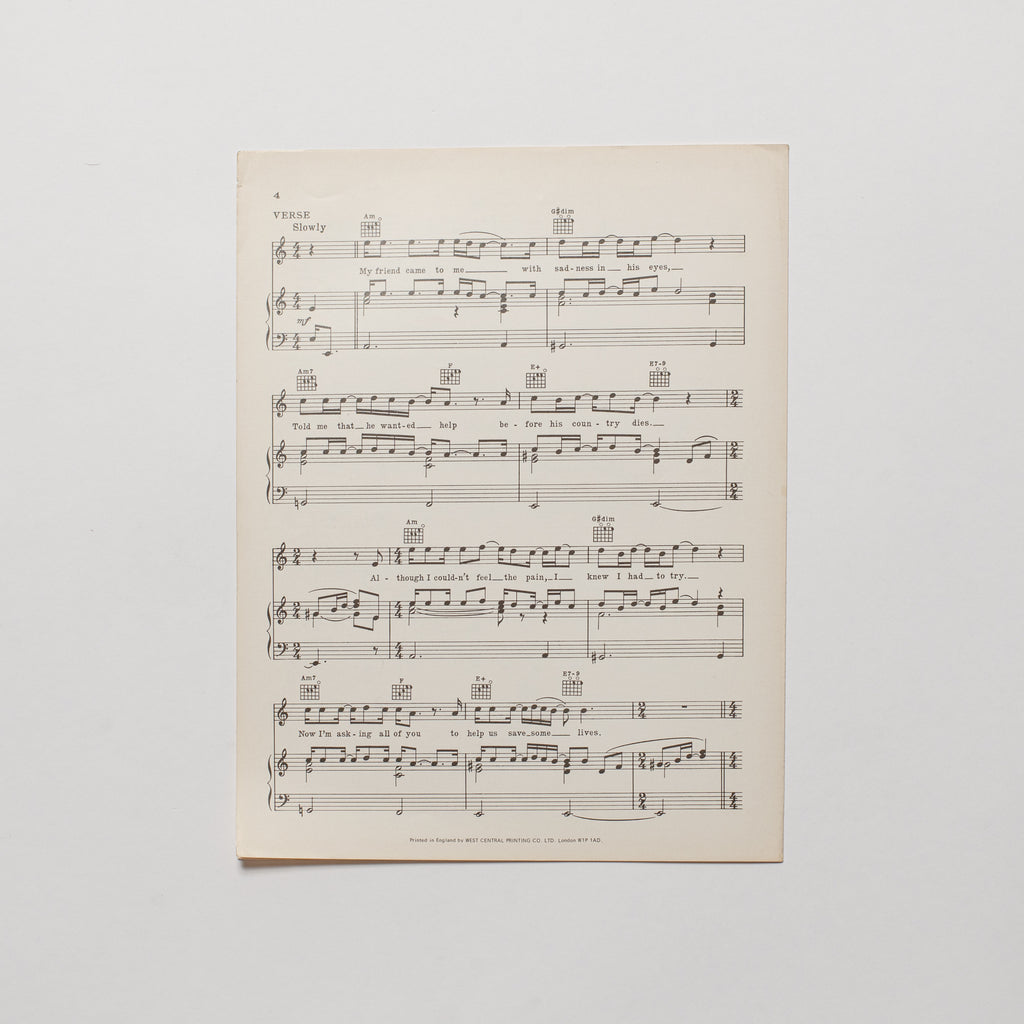 4
VERSE
Slowly
Am G♯dim
My friend came to me____ with sad-ness in__ his eyes,__
mf
Am7 F E+ E7-9
Told me that__he want-ed__ help be-fore his coun-try dies.__
Am G♯dim
Al-though I could-n't feel__the pain,_I__ knew I had__to try.__
Am7 F E+ E7-9
Now I'm ask-ing all of you to help us save_some__ lives.
Printed in England by WEST CENTRAL PRINTING CO. LTD. London W1P 1AD.